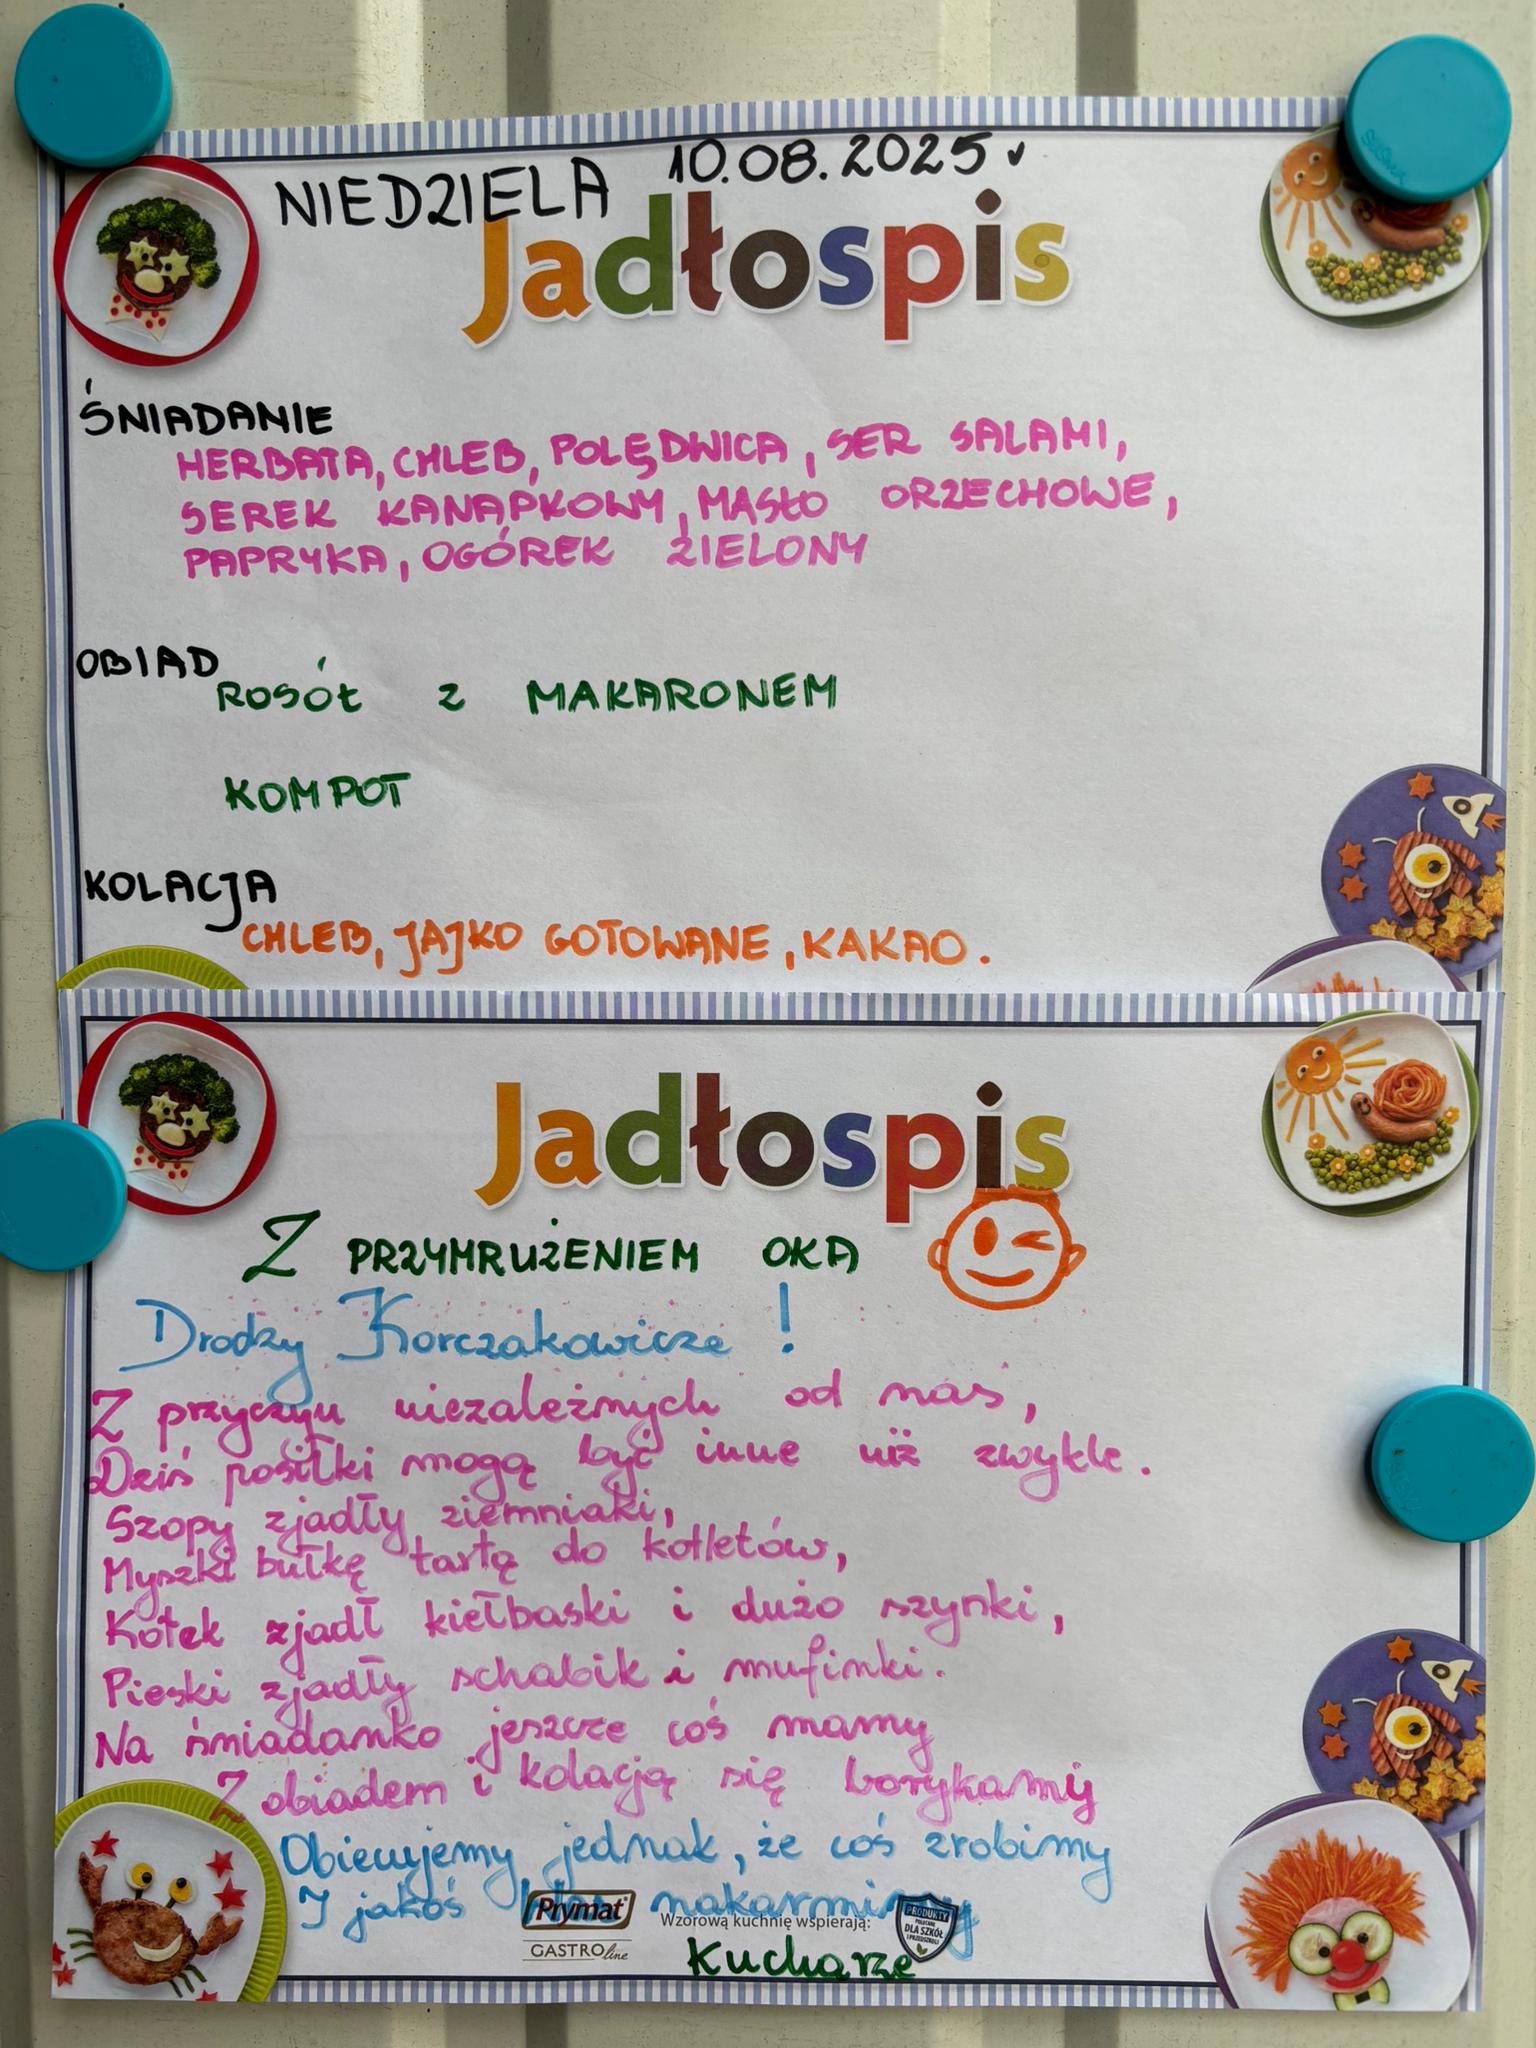 NIEDZIELA 10.08.2025r
Jadłospis
ŚNIADANIE
HERBATA, CHLEB, POLĘDWICA, SER SALAMI,
SEREK KANAPKOWY, MASŁO ORZECHOWE,
PAPRYKA, OGÓREK ZIELONY
OBIAD
ROSÓŁ Z MAKARONEM
KOMPOT
KOLACJA
CHLEB, JAJKO GOTOWANE, KAKAO.
Jadłospis
Z PRZYMRUŻENIEM OKA
Drodzy Korczakowicze!
Z przyczyn niezależnych od nas,
Dziś posiłki mogą być inne niż zwykle.
Szopy zjadły ziemniaki,
Myszki bułkę tartą do kotletów,
Kotek zjadł kiełbaski i dużo szynki,
Pieski zjadły schabik i mufinki.
Na śniadanko jeszcze coś mamy
Z obiadem i kolacją się borykamy
Obiecujemy jednak, że coś zrobimy
I jakoś Was nakarmimy
Prymat
GASTROline
Wzorową kuchnię wspierają:
PRODUKTY
POLECANE
DLA SZKÓŁ
I PRZEDSZKOLI
Kucharze